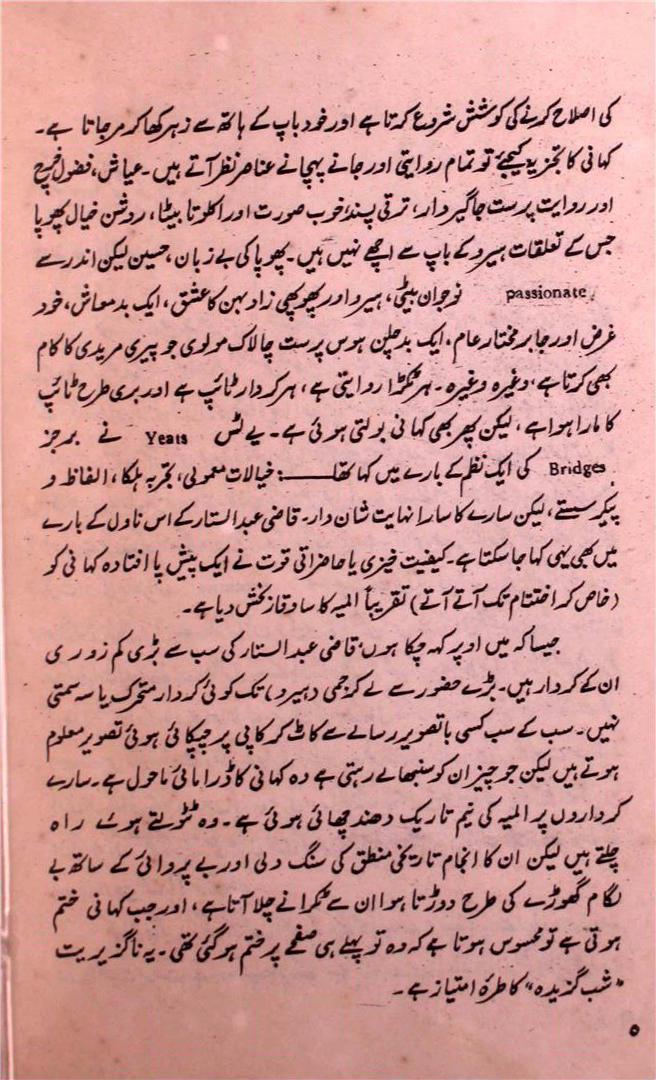 کی اصلاح کرنے کی کوشش شروع کرتا ہے اور خود باپ کے ہاتھ سے زہر کھا کر مر جاتا ہے۔
کہانی کا تجزیہ کیجئے تو تمام روایتی اور جانے پہچانے عناصر نظر آتے ہیں۔ عیاش، فضول خرچ
اور روایت پرست جاگیردار، ترقی پسند خوب صورت اور اکلوتا بیٹا، روشن خیال پھوپا
جس کے تعلقات ہیرو کے باپ سے اچھے نہیں ہیں۔ پھوپا کی بے زبان، حسین لیکن اندر سے
passionate نوجوان بیٹی، ہیرو اور پھوپھی زاد بہن کا عشق، ایک بد معاش، خود
غرض اور جابر مختار عام، ایک بدچلن ہوس پرست چالاک مولوی جو پیری مریدی کا کام
بھی کرتا ہے، وغیرہ وغیرہ۔ ہر ٹکڑا روایتی ہے، ہر کردار ٹائپ ہے اور بری طرح ٹائپ
کا مارا ہوا ہے، لیکن پھر بھی کہانی بولتی ہوئی ہے۔ یے ٹس Yeats نے برجز
Bridges کی ایک نظم کے بارے میں کہا تھا ــــ: خیالات معمولی، تجربہ ہلکا، الفاظ و
پیکر سستے، لیکن سارے کا سارا نہایت شان دار۔ قاضی عبدالستار کے اس ناول کے بارے
میں بھی یہی کہا جا سکتا ہے۔ کیفیت خیزی یا حاضراتی قوت نے ایک پیش پا افتادہ کہانی کو
(خاص کر اختتام تک آتے آتے) تقریباً المیہ کا سا وقار بخش دیا ہے۔
جیسا کہ میں اوپر کہہ چکا ہوں، قاضی عبدالستار کی سب سے بڑی کم زوری
ان کے کردار ہیں۔ بڑے حضور سے لے کر جمی (ہیرو) تک کوئی کردار متحرک یا سہ سمتی
نہیں۔ سب کے سب کسی باتصویر رسالے سے کاٹ کر کاپی پر چپکائی ہوئی تصویر معلوم
ہوتے ہیں لیکن جو چیز ان کو سنبھالے رہتی ہے وہ کہانی کا ڈرامائی ماحول ہے۔ سارے
کرداروں پر المیہ کی نیم تاریک دھند چھائی ہوئی ہے۔ وہ ٹٹولتے ہوئے راہ
چلتے ہیں لیکن ان کا انجام تاریخی منطق کی سنگ دلی اور بے پروائی کے ساتھ بے
لگام گھوڑے کی طرح دوڑتا ہوا ان سے ٹکرانے چلا آتا ہے، اور جب کہانی ختم
ہوتی ہے تو محسوس ہوتا ہے کہ وہ تو پہلے ہی صفحے پر ختم ہو گئی تھی۔ یہ ناگزیریت
"شب گزیدہ" کا طرۂ امتیاز ہے۔
۵